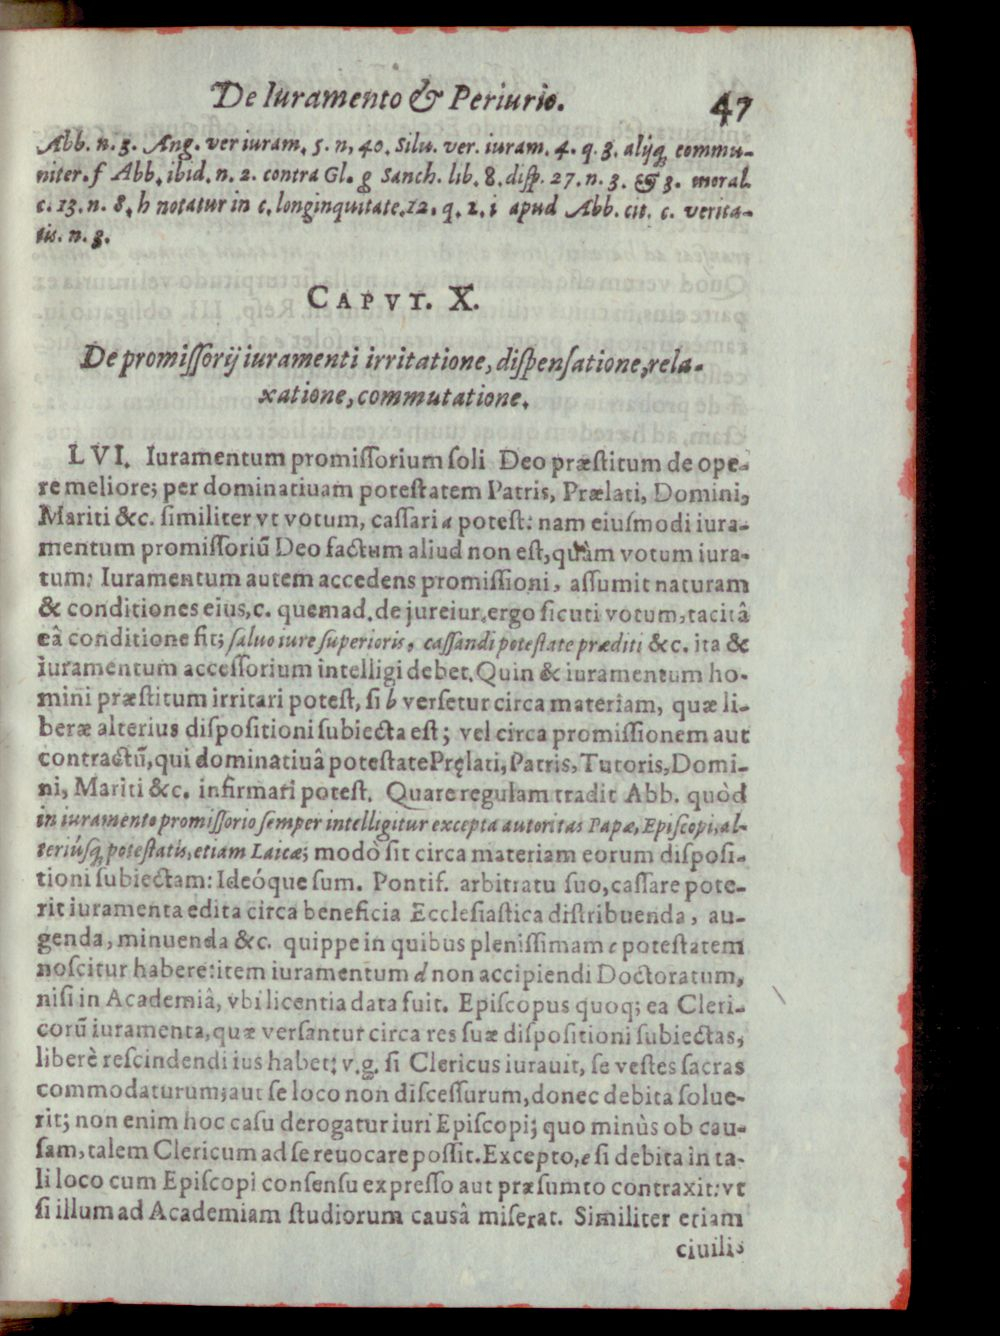 De Iuramento & Periurio. 47
Abb. n. 3. Ang. ver iuram. 5. n. 40. Silu. ver. iuram. 4. q. 3. alijq; commu-
niter. f Abb. ibid. n. 2. contra Gl. g Sanch. lib. 8. disp. 27. n. 3. & 3. moral.
c. 13. n. 8. h notatur in c. longinquitate. 12. q. 2. i apud Abb. cit. c. verita-
tis. n. 3.
CAPVT. X.
De promissorij iuramenti irritatione, dispensatione, rela-
xatione, commutatione.
LVI. Iuramentum promissorium soli Deo præstitum de ope-
re meliore; per dominatiuam potestatem Patris, Prælati, Domini,
Mariti &c. similiter vt votum, cassari a potest: nam eiusmodi iura-
mentum promissoriũ Deo factum aliud non est, quàm votum iura-
tum: Iuramentum autem accedens promissioni, assumit naturam
& conditiones eius, c. quemad. de jureiur. ergo sicuti votum, tacitâ
eâ conditione fit; saluo iure superioris, cassandi potestate præditi &c. ita &
iuramentum accessorium intelligi debet. Quin & iuramentum ho-
mini præstitum irritari potest, si b versetur circa materiam, quæ li-
beræ alterius dispositioni subiecta est; vel circa promissionem aut
contractũ, qui dominatiuâ potestate Pręlati, Patris, Tutoris, Domi-
ni, Mariti &c. infirmari potest. Quare regulam tradit Abb. quòd
in iuramento promissorio semper intelligitur excepta autoritas Papæ, Episcopi, al-
teriúsq; potestatis, etiam Laicæ; modò sit circa materiam eorum disposi-
tioni subiectam: Ideóque sum. Pontif. arbitratu suo, cassare pote-
rit iuramenta edita circa beneficia Ecclesiastica distribuenda, au-
genda, minuenda &c. quippe in quibus plenissimam c potestatem
noscitur habere: item iuramentum d non accipiendi Doctoratum,
nisi in Academiâ, vbi licentia data fuit. Episcopus quoq; ea Cleri-
corũ iuramenta, quæ versantur circa res suæ dispositioni subiectas,
liberè rescindendi ius habet; v.g. si Clericus iurauit, se vestes sacras
commodaturum; aut se loco non discessurum, donec debita solue-
rit; non enim hoc casu derogatur iuri Episcopi; quo minùs ob cau-
sam, talem Clericum ad se reuocare possit. Excepto, e si debita in ta-
li loco cum Episcopi consensu expresso aut præsumto contraxit: vt
si illum ad Academiam studiorum causâ miserat. Similiter etiam
ciuilis